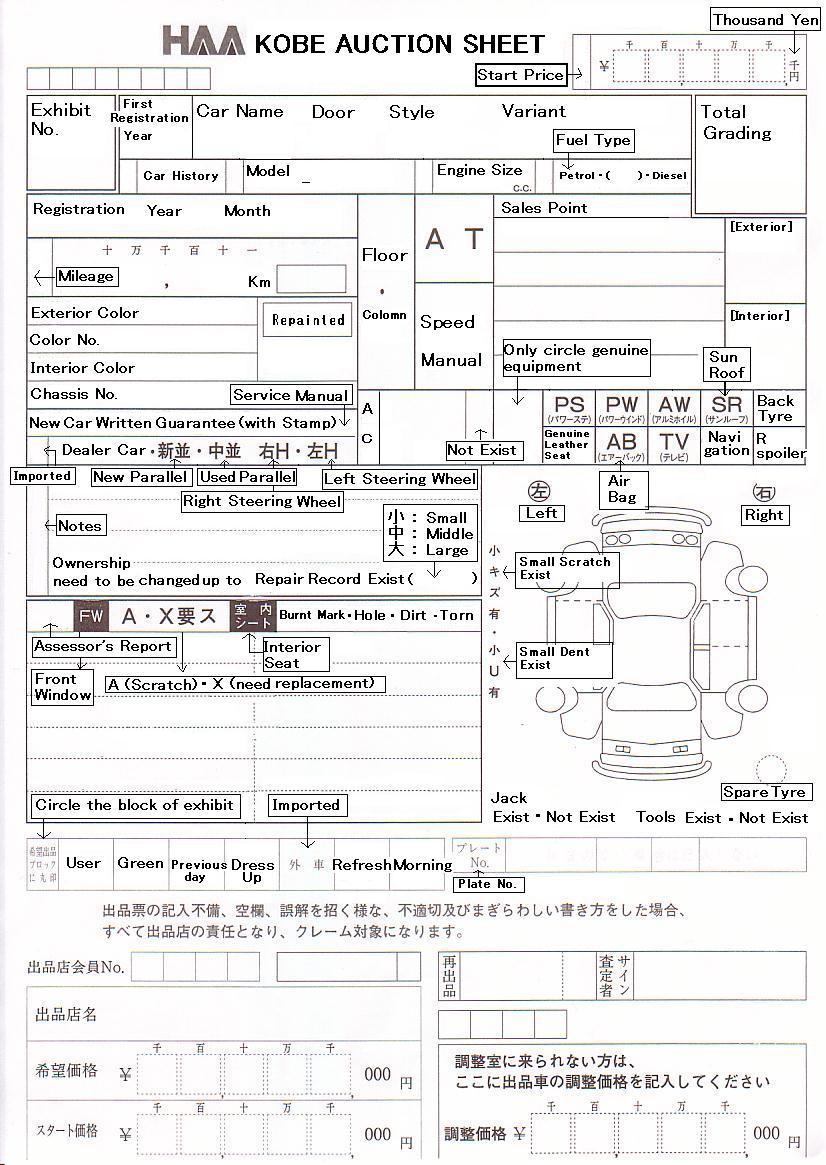 Thousand Yen
HAA KOBE AUCTION SHEET
Start Price
¥ 千 百 十 万 千 千円
Exhibit No.
First Registration Year
Car Name Door Style Variant
Total Grading
Fuel Type
Car History
Model _
Engine Size c.c.
Petrol・( )・Diesel
Registration Year Month
Sales Point
十 万 千 百 十 一
Mileage , Km
Floor
・
Colomn
A T
Speed
Manual
[Exterior]
[Interior]
Exterior Color
Repainted
Color No.
Interior Color
Chassis No.
Service Manual
New Car Written Guarantee (with Stamp)
A C
Only circle genuine equipment
Sun Roof
Not Exist
PS (パワーステ)
PW (パワーウインド)
AW (アルミホイル)
SR (サンルーフ)
Back Tyre
Genuine Leather Seat
AB (エアーバック)
TV (テレビ)
Navi gation
R spoiler
Dealer Car・新並・中並 右H・左H
Imported
New Parallel
Used Parallel
Left Steering Wheel
Right Steering Wheel
Air Bag
左
Left
右
Right
Notes
小 : Small
中 : Middle
大 : Large
Ownership
need to be changed up to Repair Record Exist ( )
小キズ有・小U有
Small Scratch Exist
Small Dent Exist
FW A・X要ス 室内シート Burnt Mark・Hole・Dirt・Torn
Assessor's Report
Interior Seat
Front Window
A (Scratch)・X (need replacement)
Spare Tyre
Jack
Exist・Not Exist Tools Exist・Not Exist
Circle the block of exhibit
Imported
希望出品
ブロック
に丸印
User
Green
Previous day
Dress Up
外車
Refresh
Morning
プレート No.
Plate No.
出品票の記入不備、空欄、誤解を招く様な、不適切及びまぎらわしい書き方をした場合、
すべて出品店の責任となり、クレーム対象になります。
出品店会員No.
再出品
査定者
サイン
出品店名
希望価格 ¥ 千 百 十 万 千 000 円
スタート価格 ¥ 千 百 十 万 千 000 円
調整室に来られない方は、
ここに出品車の調整価格を記入してください
調整価格 ¥ 千 百 十 万 千 000 円